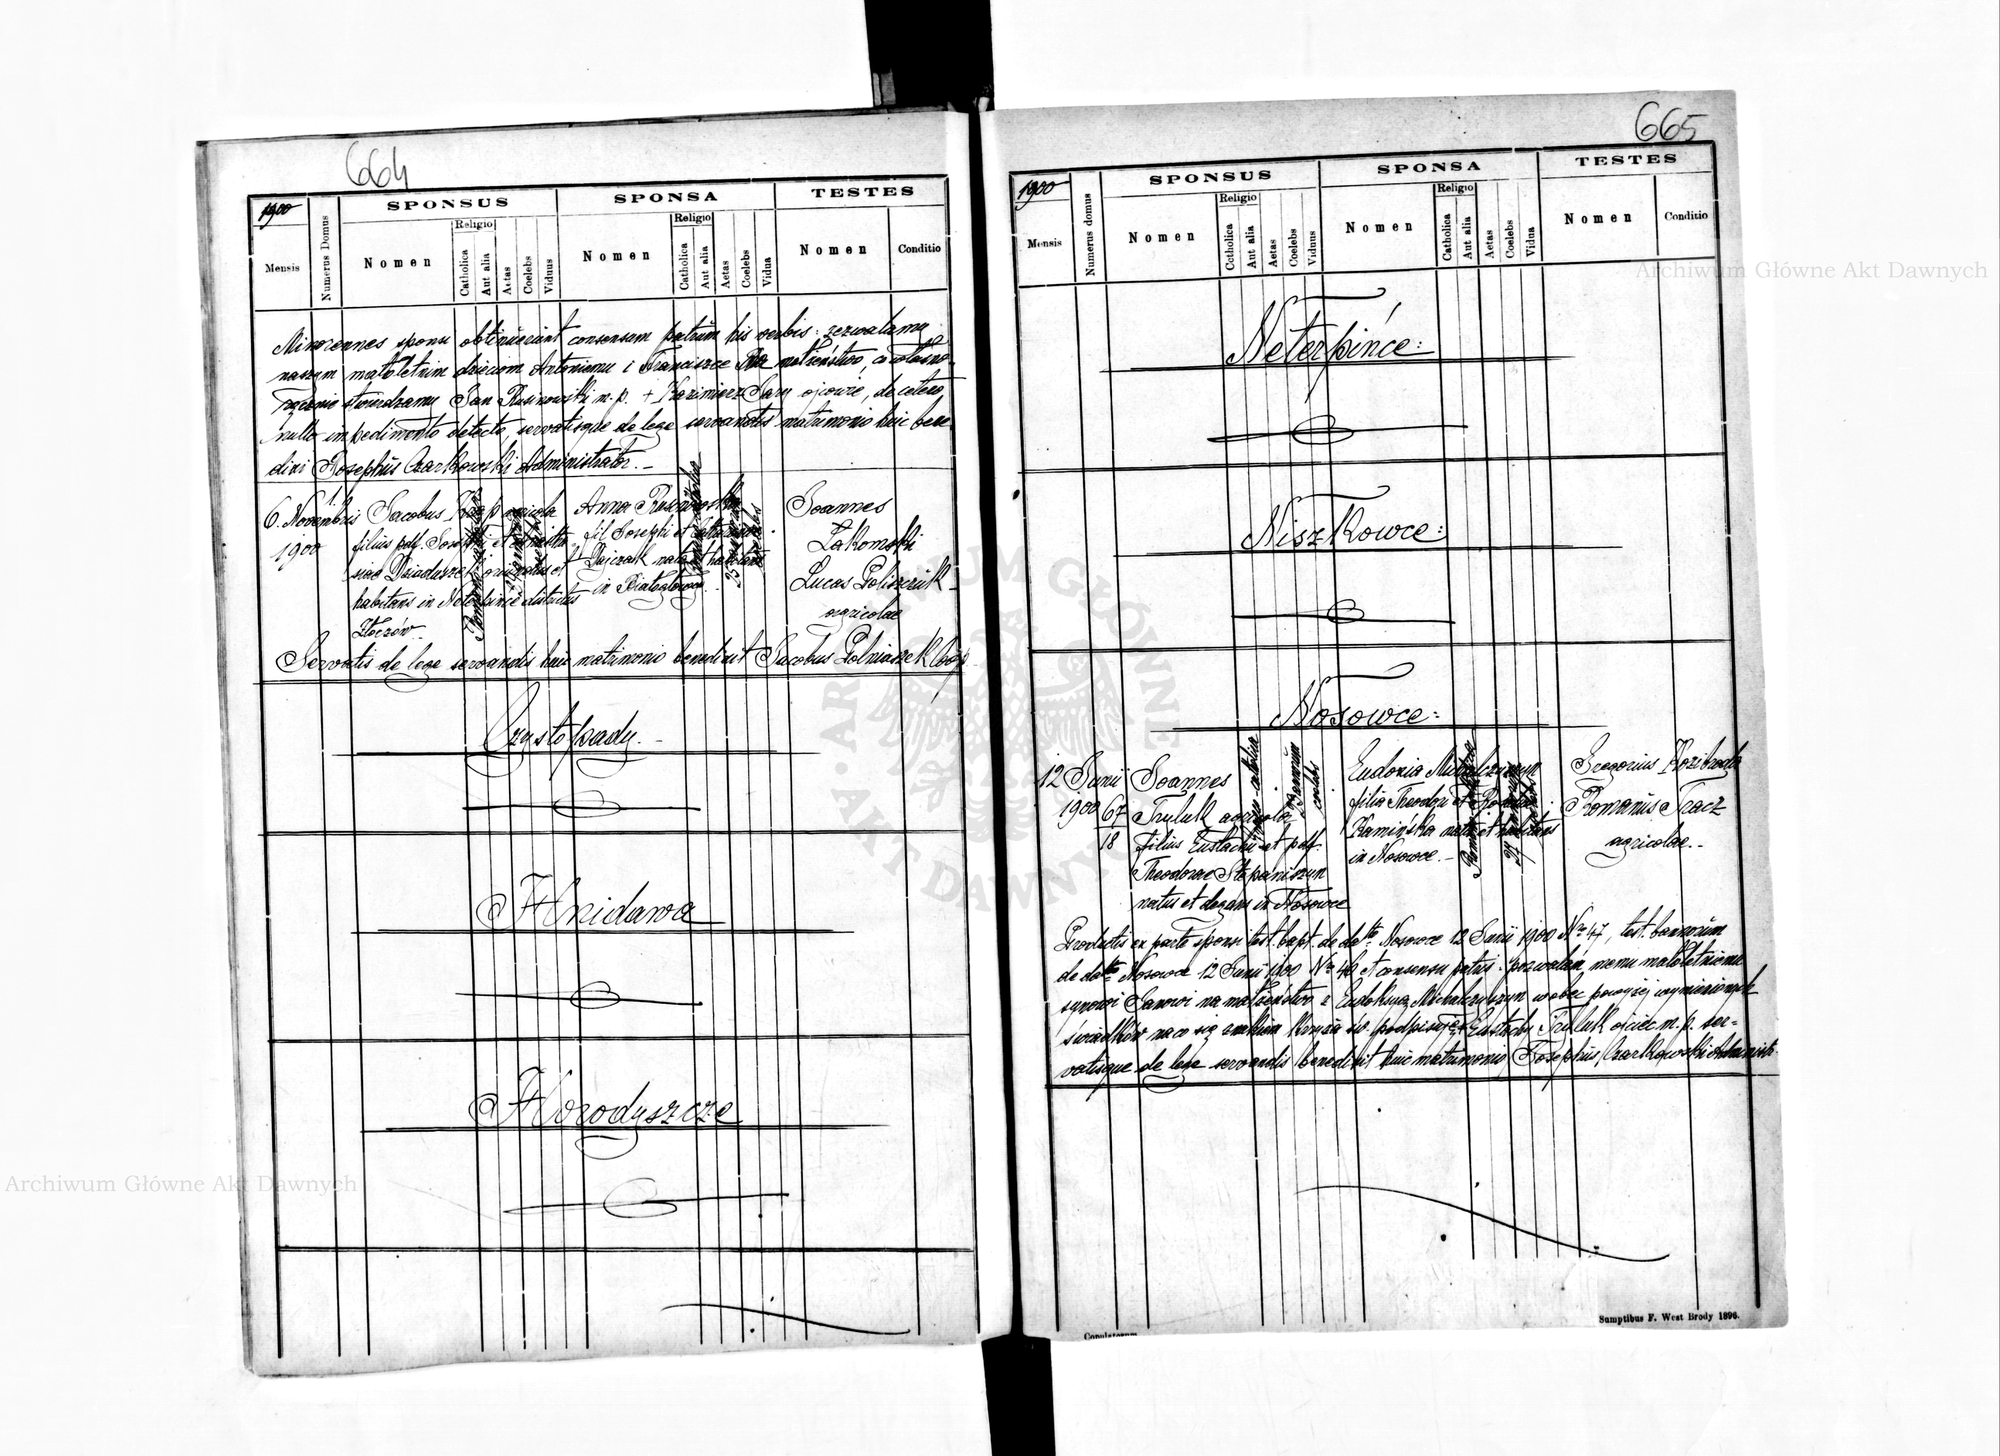 664
1900
SPONSUS
SPONSA
TESTES
Mensis
Numerus Domus
Nomen
Religio
Catholica
Aut alia
Aetas
Coelebs
Viduus
Nomen
Religio
Catholica
Aut alia
Aetas
Coelebs
Vidua
Nomen
Conditio
Minorennes sponsi obtinuerunt consensum patrum his verbis: zezwalamy
naszym małoletnim dzieciom Antoniemu i Franciszce na małżeństwo, co własno-
ręcznie stwierdzamy Jan Rusinowski m. p. + Kazimierz ojcowie, de cetero
nullo impedimento detecto servatisque de lege servandis matrimonio huic bene
dixi Josephus Czarkowski Administrator. –
6. Novembris
1900
Jacobus agricola
filius pdf. Josephi et
Dziaduszek oriundus et
habitans in Neterpińce districtus
Złoczów
Anna
fil. Josephi et
Pajczak nata et habitans
in
Joannes
Zakomski
Lucas
agricolae
Servatis de lege servandis huic matrimonio benedixit Jacobus Polniaszek Coop.
Czystopady. –
Hnidawa
Horodyszcze
665
1900
SPONSUS
SPONSA
TESTES
Mensis
Numerus domus
Nomen
Religio
Catholica
Aut alia
Aetas
Coelebs
Viduus
Nomen
Religio
Catholica
Aut alia
Aetas
Coelebs
Vidua
Nomen
Conditio
Neterpińce:
Niszkowce:
Nosowce:
12 Junii
1900
67
18
Joannes
Tryluk agricola
filius Eustachii et pdf.
Theodorae Stepaniszyn
natus et degens in Nosowce
coelebs
Eudoxia Michalczyszyn
filia Theodori et
Kamińska nata et habitans
in Nosowce. –
Gregorius
Romanus Tracz
agricolae. –
Productis ex parte sponsi test. bapt. de dato Nosowce 12 Junii 1900 Nro 47, test. bannorum
de dato Nosowce 12 Junii 1900 Nro 46 et consensu patris: pozwalam memu małoletniemu
synowi Janowi na małżeństwo z Eudoksyą Michalczyszyn wobec powyżej wymienionych
świadków na co się znakiem Krzyża św. podpisuję + Eustachy Tryluk ojciec m. p. ser-
vatisque de lege servandis benedixit huic matrimonio Josephus Czarkowski Administr.
Copulatorum
Sumptibus F. West Brody 1896.
Archiwum Główne Akt Dawnych
Archiwum Główne Akt Dawnych
ARCHIWUM GŁÓWNE AKT DAWNYCH